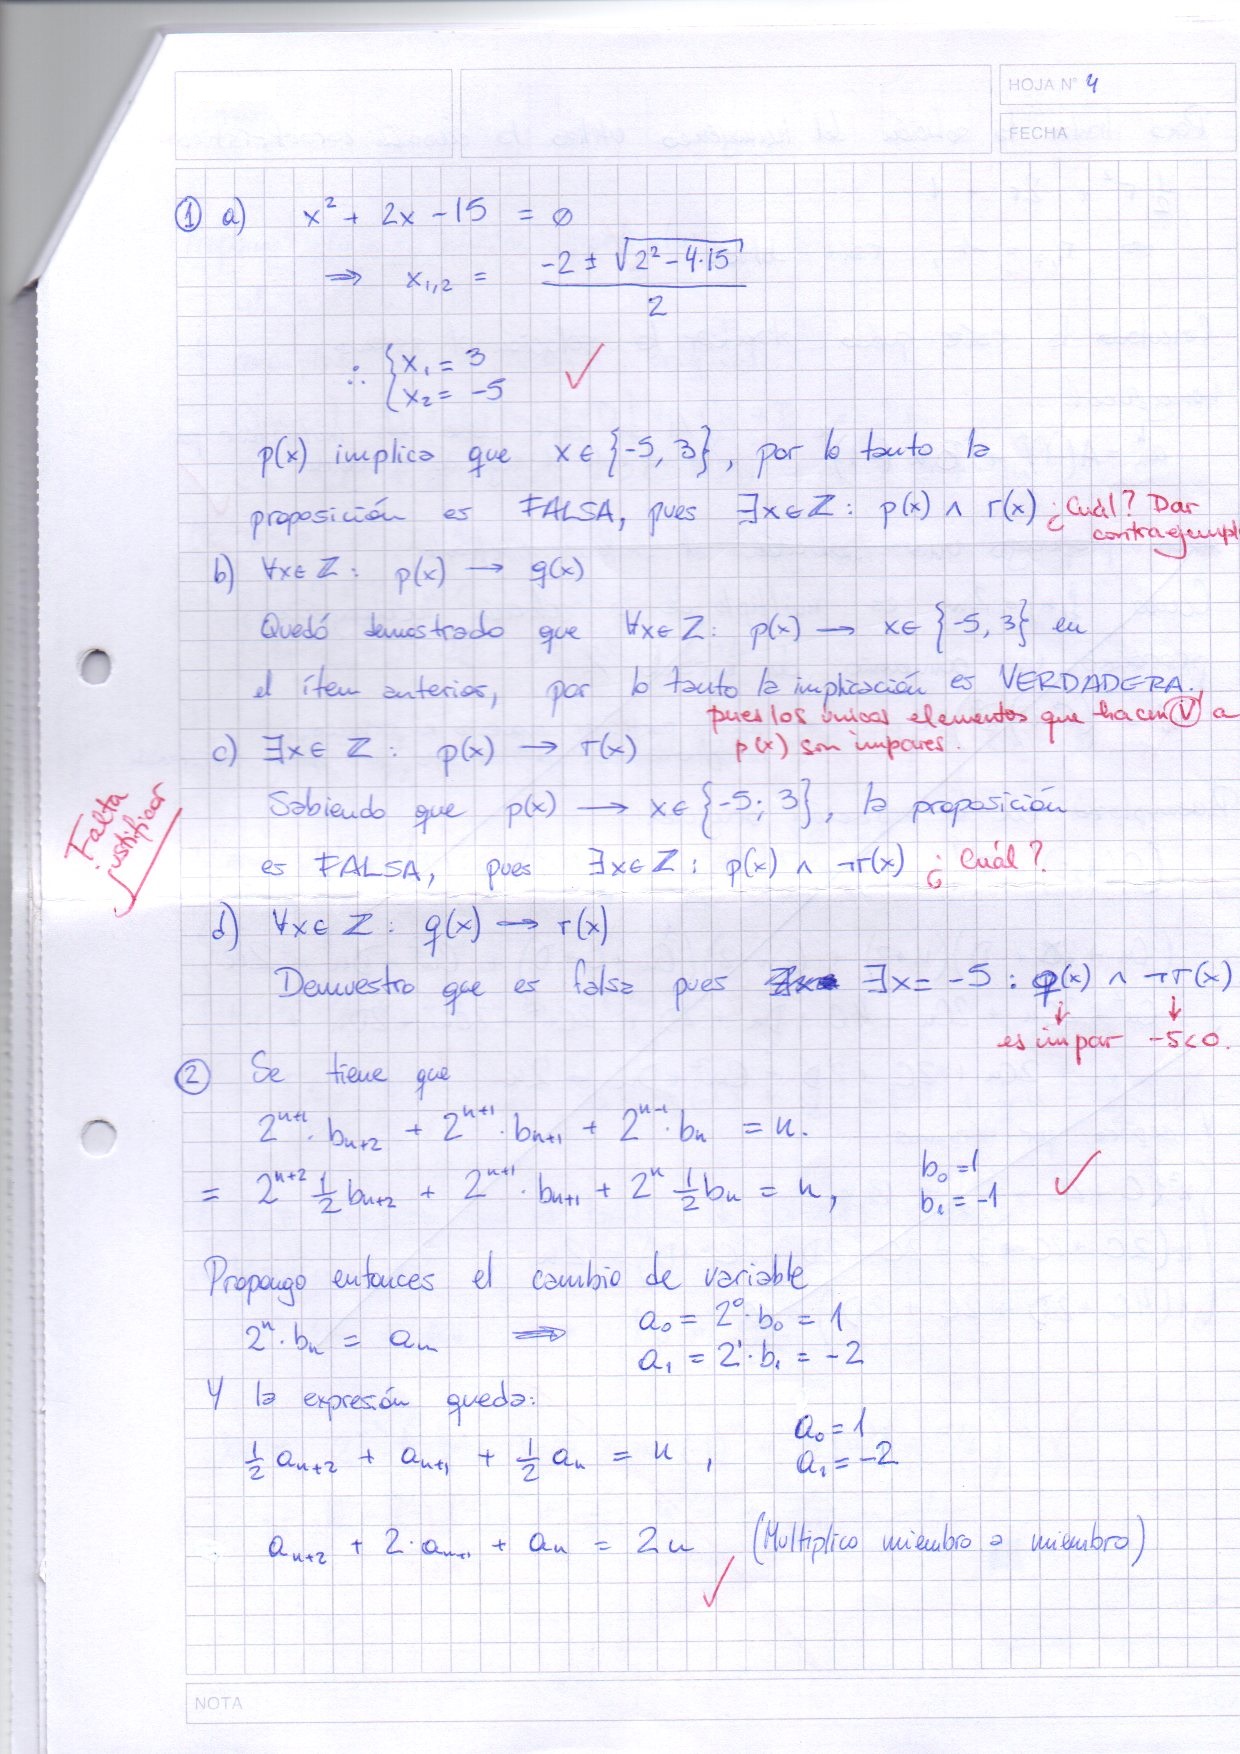 HOJA Nº 4
FECHA
① a) x² + 2x - 15 = 0
⇒ x₁,₂ = (-2 ± √(2² - 4·15)) / 2
∴ { x₁ = 3
x₂ = -5
p(x) implica que x ∈ {-5, 3}, por lo tanto la
proposición es FALSA, pues ∃x∈ℤ : p(x) ∧ r(x) ¿Cuál? Dar
contraejempl
b) ∀x∈ℤ : p(x) → q(x)
Quedó demostrado que ∀x∈ℤ : p(x) → x∈{-5, 3} en
el ítem anterior, por lo tanto la implicación es VERDADERA.,
pues los únicos elementos que hacen Ⓥ a
p(x) son impares.
c) ∃x∈ℤ : p(x) → r(x)
Falta
justificar
Sabiendo que p(x) → x∈{-5; 3}, la proposición
es FALSA, pues ∃x∈ℤ : p(x) ∧ ¬r(x) ¿Cuál?
d) ∀x∈ℤ : q(x) → r(x)
Demuestro que es falsa pues ∃x = -5 : q(x) ∧ ¬r(x)
↓ ↓
es impar -5<0.
② Se tiene que
2ⁿ⁺¹·bₙ₊₂ + 2ⁿ⁺¹·bₙ₊₁ + 2ⁿ⁻¹·bₙ = n.
= 2ⁿ⁺² ½ bₙ₊₂ + 2ⁿ⁺¹·bₙ₊₁ + 2ⁿ ½ bₙ = n, b₀ = 1
b₁ = -1
Propongo entonces el cambio de variable
2ⁿ·bₙ = aₙ ⇒ a₀ = 2⁰·b₀ = 1
a₁ = 2¹·b₁ = -2
Y la expresión queda:
½ aₙ₊₂ + aₙ₊₁ + ½ aₙ = n , a₀ = 1
a₁ = -2
aₙ₊₂ + 2·aₙ₊₁ + aₙ = 2n (Multiplico miembro a miembro)
NOTA